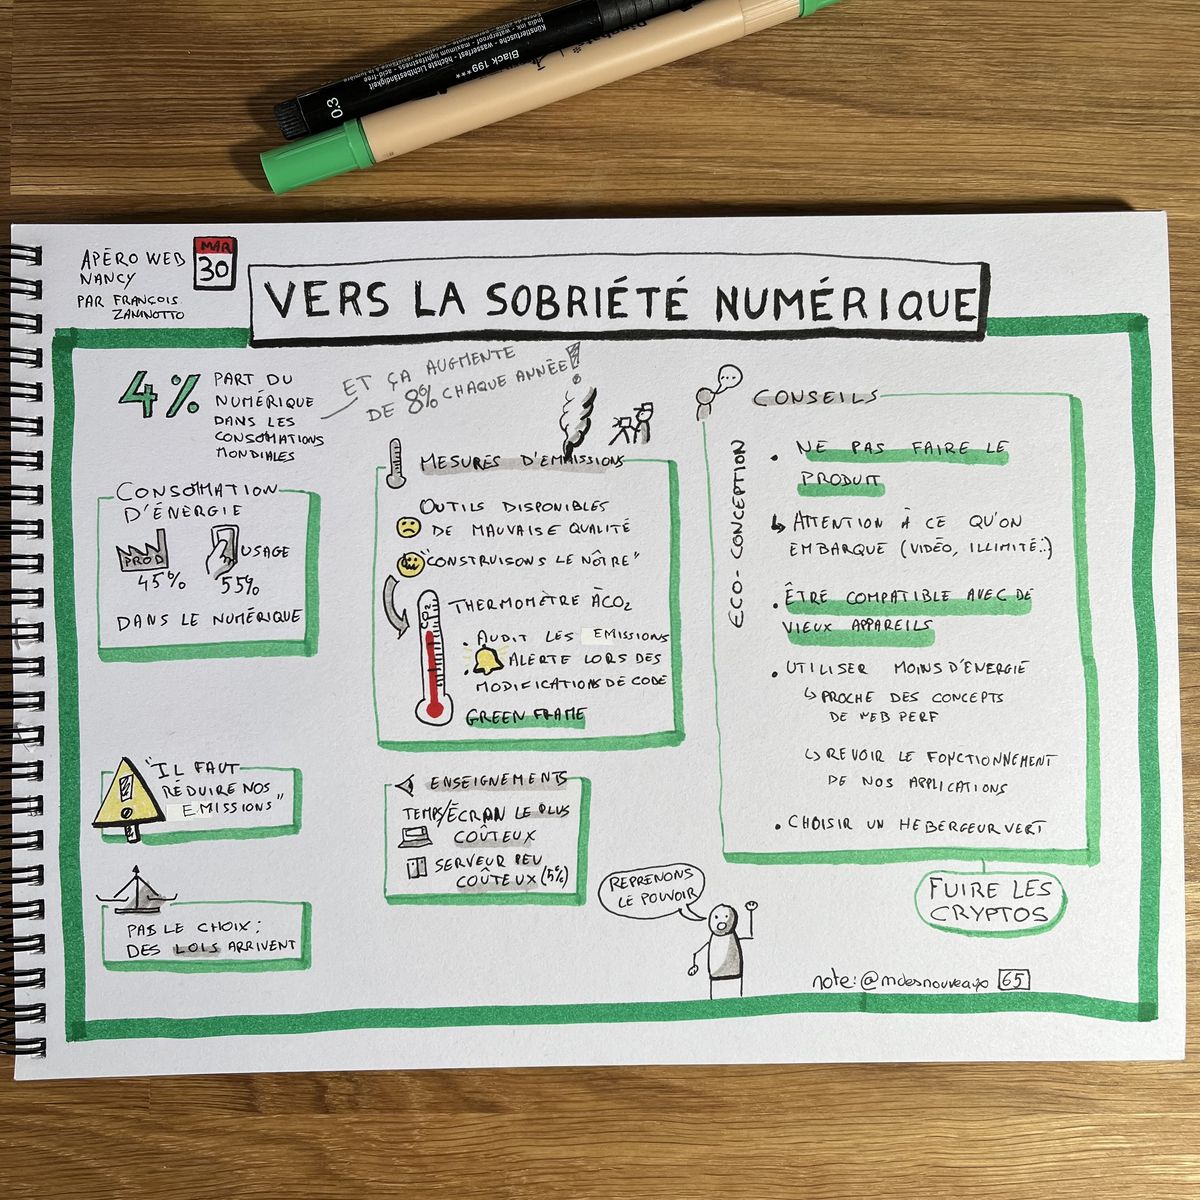 0.3
Black 199***
India ink - waterproof - permanente
Künstlertusche - wasserfest - höchste Lichtbeständigkeit
APÉRO WEB
NANCY
PAR FRANÇOIS
ZANINOTTO
MAR
30
VERS LA SOBRIÉTÉ NUMÉRIQUE
4%
PART DU
NUMÉRIQUE
DANS LES
CONSOMMATIONS
MONDIALES
ET ÇA AUGMENTE
DE 8% CHAQUE ANNÉE!
CONSOMMATION
D'ÉNERGIE
PROD
45%
USAGE
55%
DANS LE NUMÉRIQUE
"IL FAUT
RÉDUIRE NOS
EMISSIONS"
PAS LE CHOIX:
DES LOIS ARRIVENT
MESURES D'EMISSIONS
OUTILS DISPONIBLES
DE MAUVAISE QUALITÉ
"CONSTRUISONS LE NÔTRE"
THERMOMÈTRE À CO2
CO2
. AUDIT LES EMISSIONS
. ALERTE LORS DES
MODIFICATIONS DE CODE
GREEN FRAME
ENSEIGNEMENTS
TEMPS/ÉCRAN LE PLUS
COÛTEUX
SERVEUR PEU
COÛTEUX (5%)
REPRENONS
LE POUVOIR
CONSEILS
ECO-CONCEPTION
. NE PAS FAIRE LE
PRODUIT
↳ ATTENTION À CE QU'ON
EMBARQUE (VIDÉO, ILLIMITÉ..)
. ÊTRE COMPATIBLE AVEC DE
VIEUX APPAREILS
. UTILISER MOINS D'ENERGIE
↳ PROCHE DES CONCEPTS
DE WEB PERF
↳ REVOIR LE FONCTIONNEMENT
DE NOS APPLICATIONS
. CHOISIR UN HEBERGEUR VERT
FUIRE LES
CRYPTOS
note: @mdesnouveaux 65